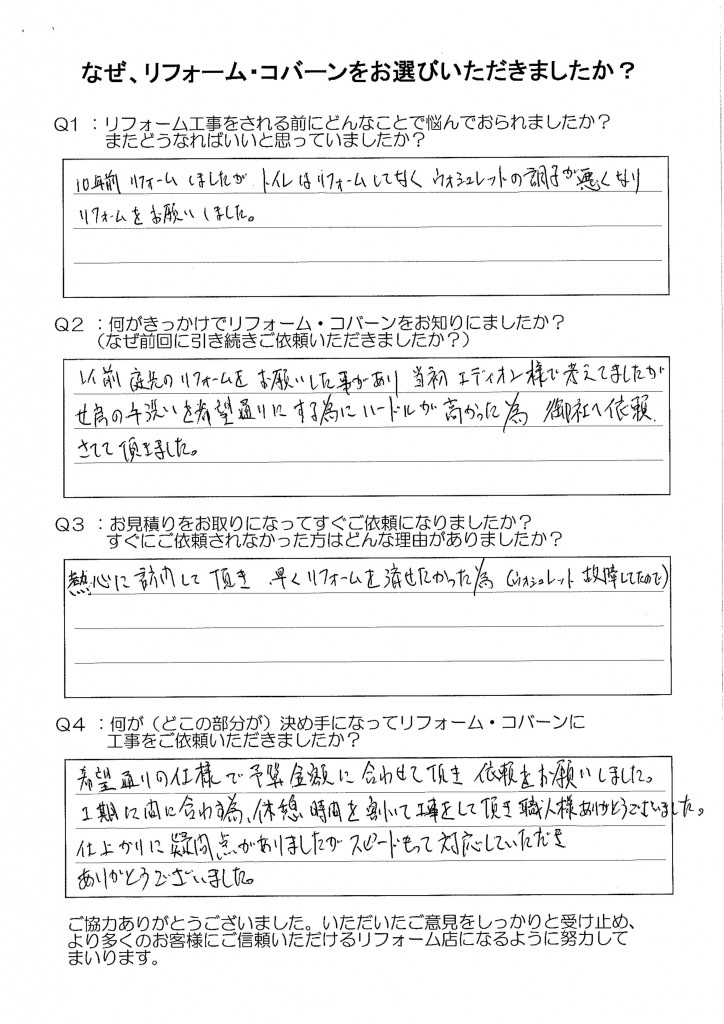 なぜ、リフォーム・コバーンをお選びいただきましたか？
Q1 ：リフォーム工事をされる前にどんなことで悩んでおられましたか？
またどうなればいいと思っていましたか？
10年前 リフォームしましたが トイレはリフォームしてなく ウォシュレットの調子が悪くなり
リフォームをお願いしました。
Q2 ：何がきっかけでリフォーム・コバーンをお知りにましたか？
（なぜ前回に引き続きご依頼いただきましたか？）
以前 庭先のリフォームをお願いした事があり 当初 エディオン様で考えてましたが
の手洗いを希望通りにする為にハードルが高かった為 御社へ依頼
させて頂きました。
Q3 ：お見積りをお取りになってすぐご依頼になりましたか？
すぐにご依頼されなかった方はどんな理由がありましたか？
熱心に訪問して頂き 早くリフォームを済せたかった為（ウォシュレット故障してたので）
Q4 ：何が（どこの部分が）決め手になってリフォーム・コバーンに
工事をご依頼いただきましたか？
希望通りの仕様で予算金額に合わせて頂き 依頼をお願いしました。
工期に間に合わす為、休憩時間を割いて工事をして頂き職人様ありがとうございました。
仕上がりに疑問点がありましたがスピードもって対応していただき
ありがとうございました。
ご協力ありがとうございました。いただいたご意見をしっかりと受け止め、
より多くのお客様にご信頼いただけるリフォーム店になるように努力して
まいります。